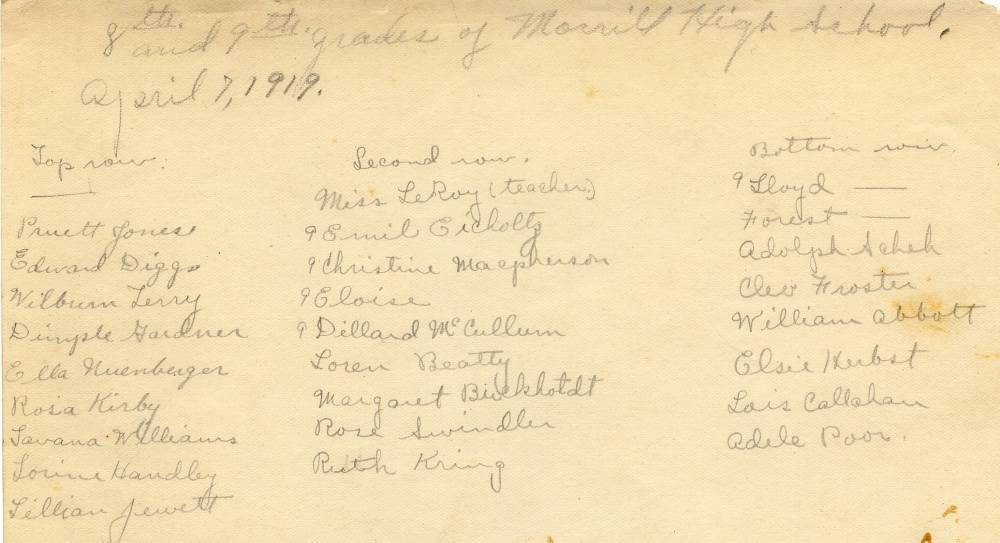 8th. and 9th. grades of Morrill High School.
April 7, 1919.
Top row.
—
Pruett Jones
Edward Diggs
Wilburn Terry
Dimple Gardner
Ella Nuenberger
Rosa Kirby
Savana Williams
Lorine Handley
Lillian Jewett
Second row.
Miss LeRoy (teacher)
9 Emil Eicholtz
9 Christine Macpherson
9 Eloise
9 Dillard McCullum
Loren Beatty
Margaret Buckholdt
Rose Swindler
Ruth Kring
Bottom row.
9 Lloyd —
Forest —
Adolph Scheh
Cleo Froster
William Abbott
Elsie Herbst
Lois Callahan
Adele Poor.